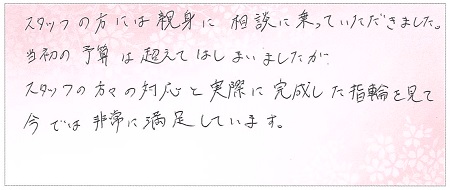 スタッフの方には親身に相談に乗っていただきました。
当初の予算は超えてはしまいましたが
スタッフの方々の対応と実際に完成した指輪を見て
今では非常に満足しています。